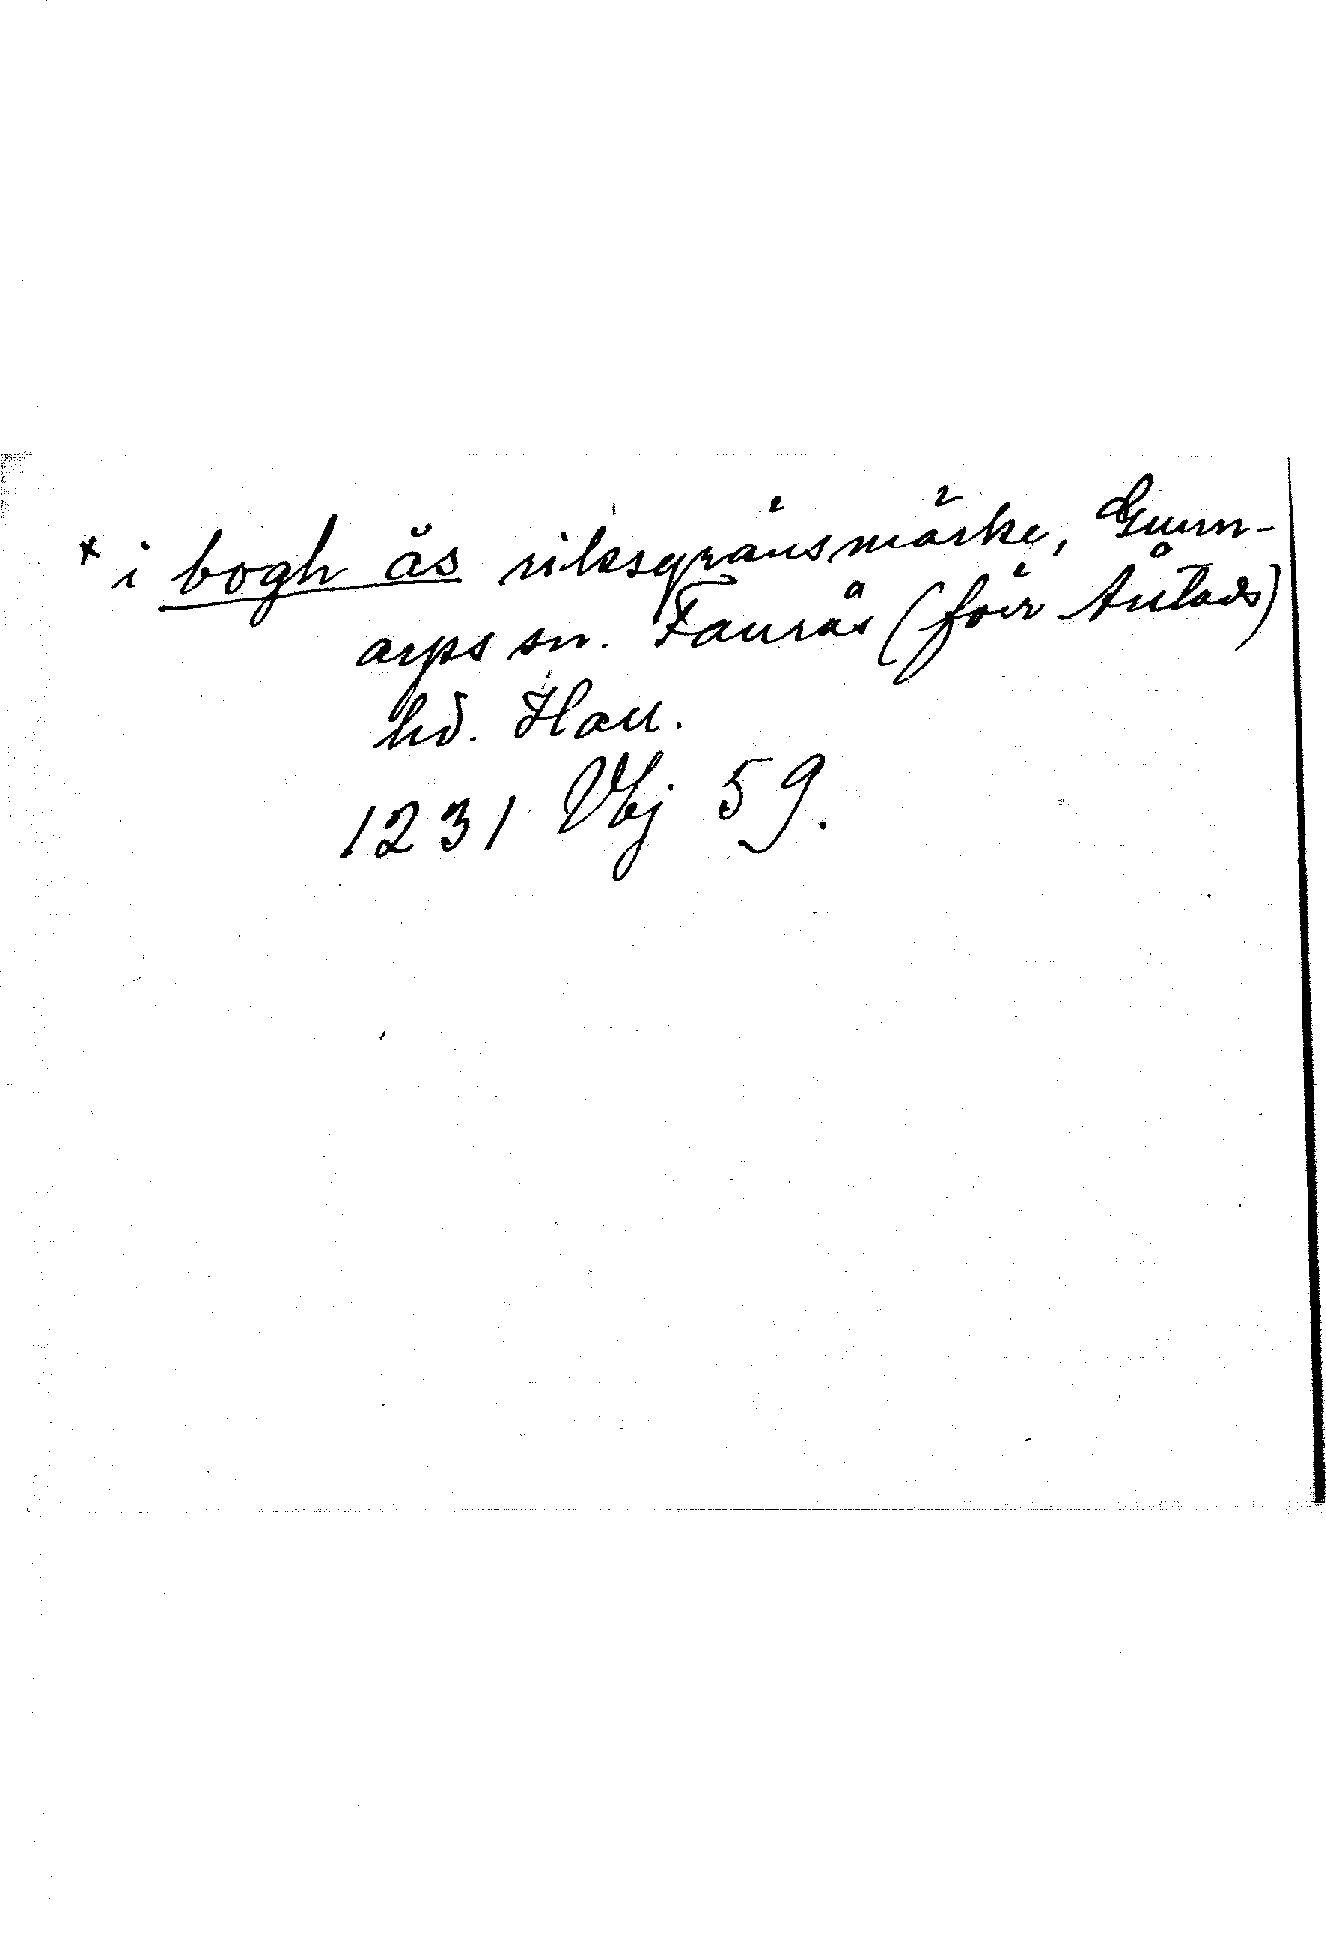 * i bogh ås riksgränsmärke, Gunn-
arps sn. Faurås (förr Årstads)
hd. Hall.
1231 Vbj 59.